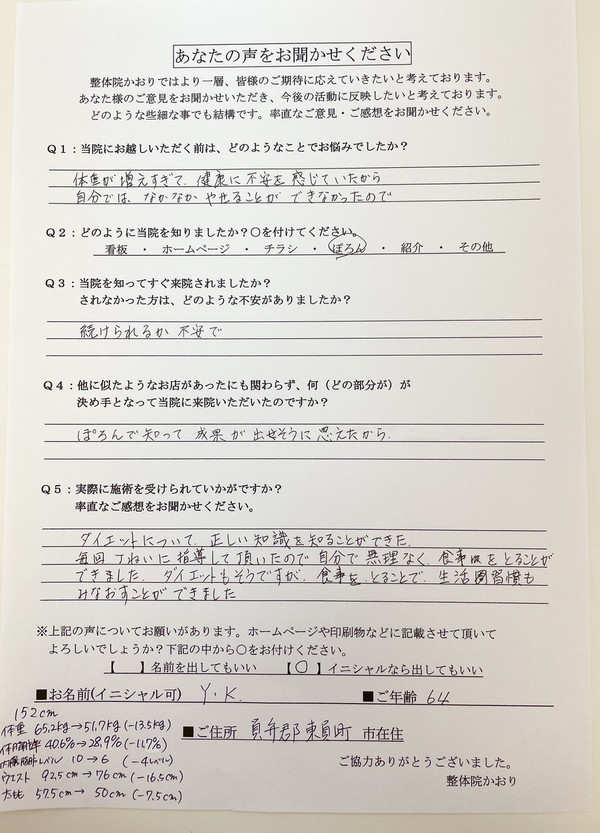 あなたの声をお聞かせください
整体院かおりではより一層、皆様のご期待に応えていきたいと考えております。
あなた様のご意見をお聞かせいただき、今後の活動に反映したいと考えております。
どのような些細な事でも結構です。率直なご意見・ご感想をお聞かせください。
Q1：当院にお越しいただく前は、どのようなことでお悩みでしたか？
体重が増えすぎて、健康に不安を感じていたから
自分では、なかなかやせることができなかったので
Q2：どのように当院を知りましたか？〇を付けてください。
看板 ・ ホームページ ・ チラシ ・ ぽろん ・ 紹介 ・ その他
Q3：当院を知ってすぐ来院されましたか？
されなかった方は、どのような不安がありましたか？
続けられるか 不安で
Q4：他に似たようなお店があったにも関わらず、何（どの部分が）が
決め手となって当院に来院いただいたのですか？
ぽろんで知って 成果が出せそうに思えたから.
Q5：実際に施術を受けられていかがですか？
率直なご感想をお聞かせください。
ダイエットについて、正しい知識を知ることができた.
毎回丁ねいに指導して頂いたので自分で無理なく、食事をとることが
できました. ダイエットもそうですが、食事をとることで、生活習慣も
みなおすことができました
※上記の声についてお願いがあります。ホームページや印刷物などに記載させて頂いて
よろしいでしょうか？下記の中から〇をお付けください。
【 】名前を出してもいい 【〇】イニシャルなら出してもいい
■お名前(イニシャル可) Y.K. ■ご年齢 64
■ご住所 員弁郡東員町 市在住
152cm
体重 65.2kg→51.7kg(-13.5kg)
体脂肪率 40.6%→28.9%(-11.7%)
内臓脂肪レベル 10→6 (-4レベル)
ウエスト 92.5cm→76cm(-16.5cm)
太もも 57.5cm→50cm(-7.5cm)
ご協力ありがとうございました。
整体院かおり